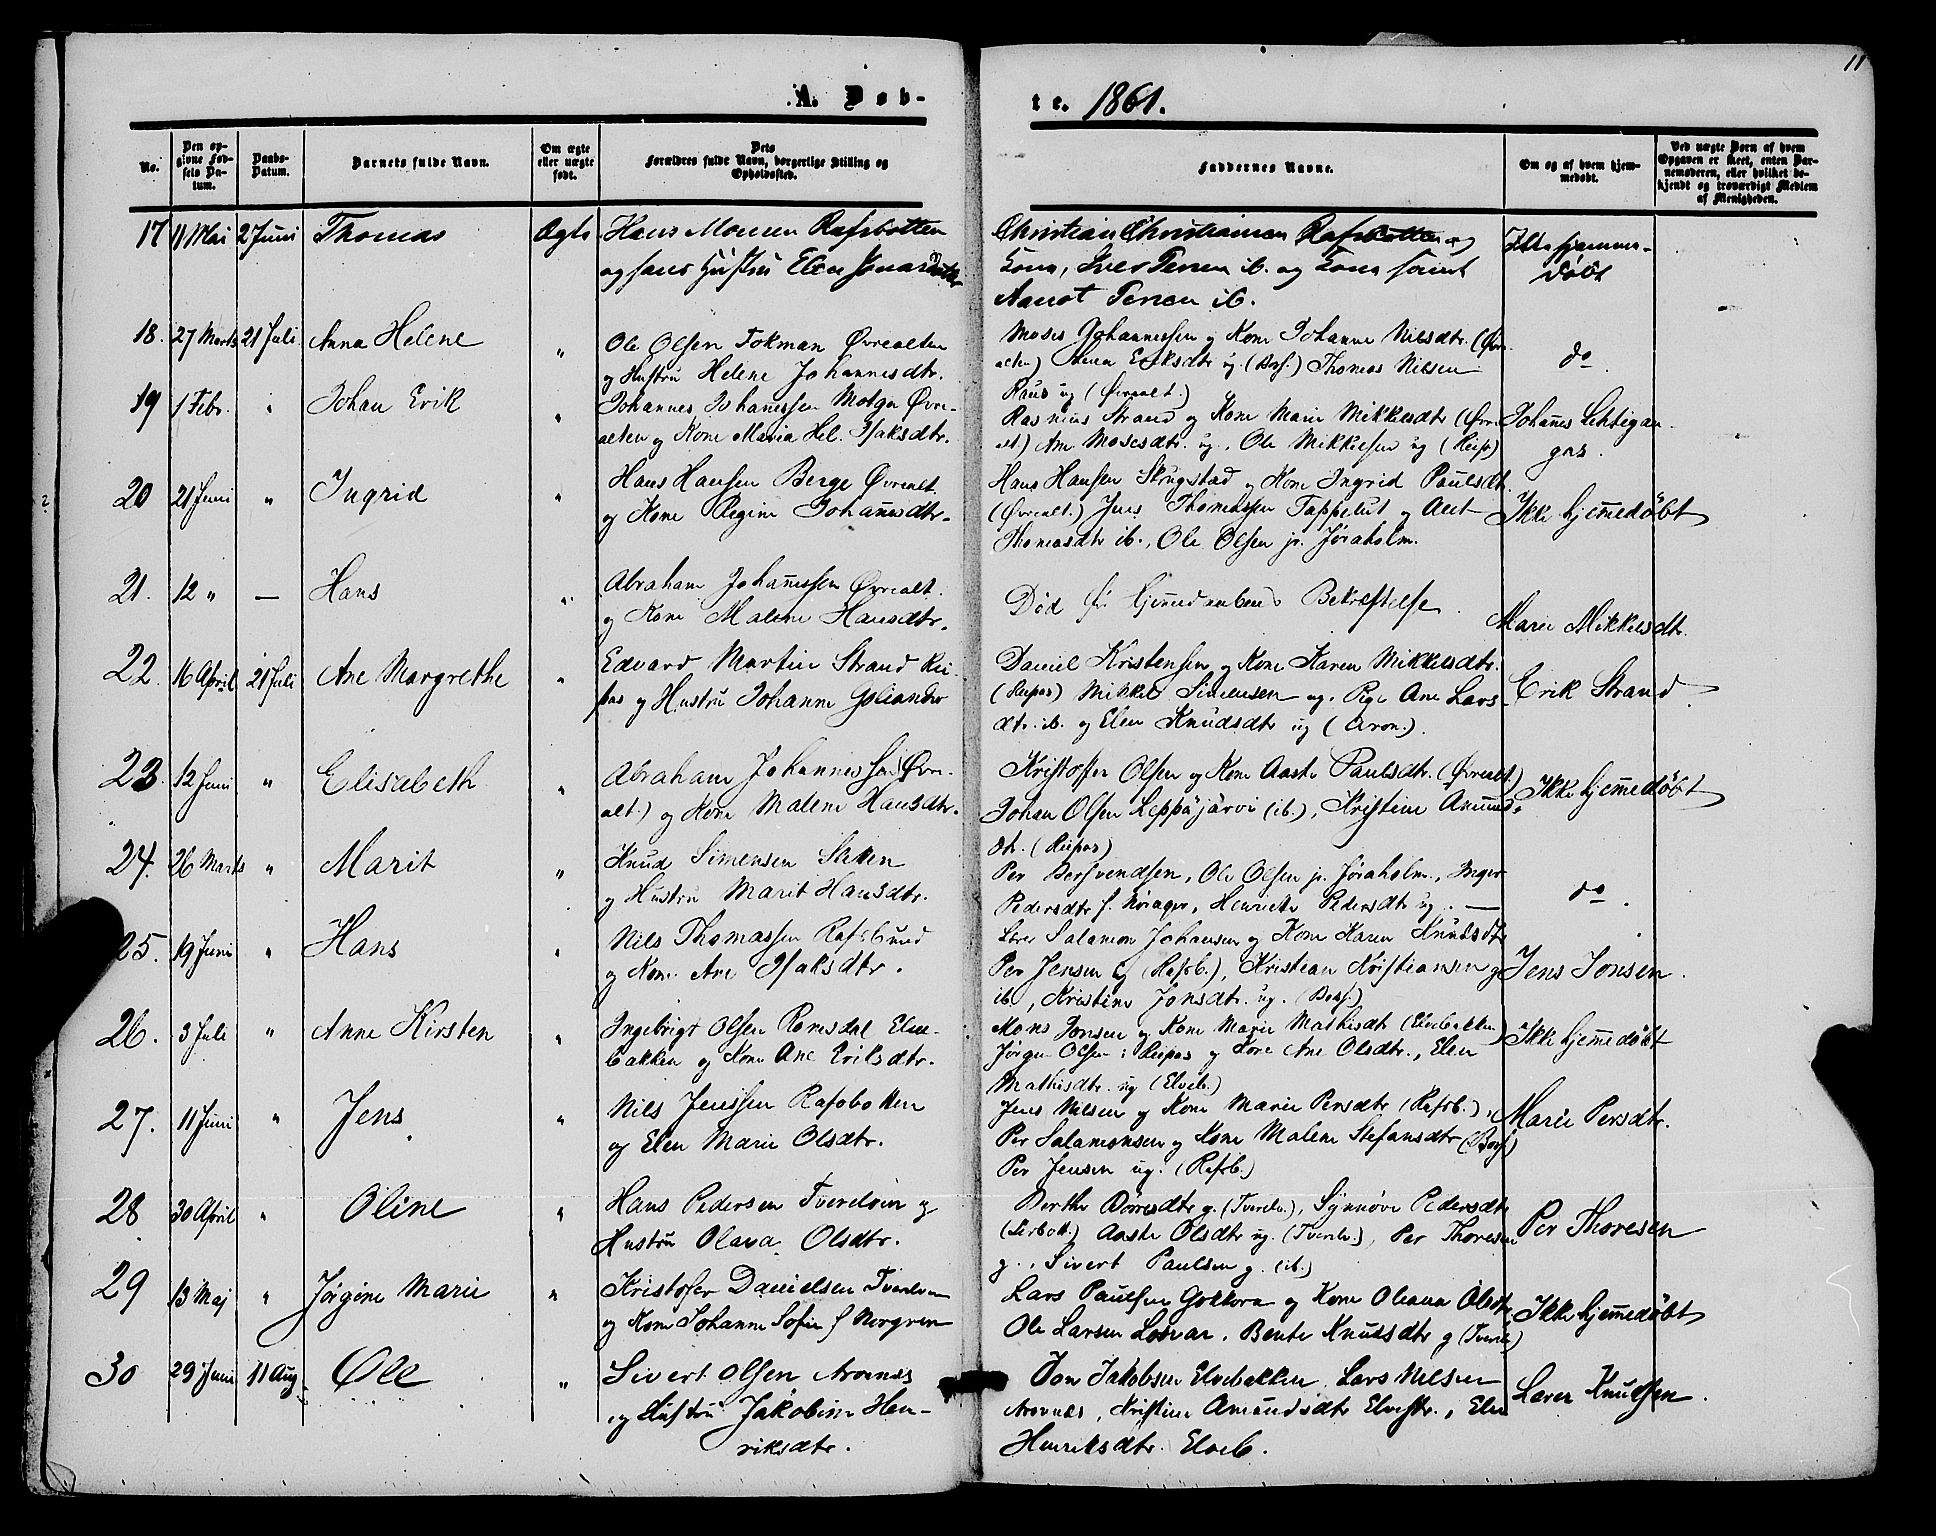 11
A. Døb-
te. 1861.
No.
Den op-
givne Fød-
sels Da-
tum.
Daabs-
Datum.
Barnets fulde Navn.
Om ægte
eller uægte
født.
Dets
Forældres fulde Navn, borgerlige Stilling og
Opholdssted.
Faddernes Navne.
Om og af hvem hjem-
medøbt.
Ved uægte Børn af hvem
Opgaven er skeet, enten Bar-
nemoderen, eller hvilket be-
kjendt og troværdigt Medlem
af Menigheden.
17 11 Mai 2 Juni Thomas Ægte Hans Monsen Rafsbotten
og hans Hustru Elen
Christian Christiansen Rafsbotten og
Kone, Iver ib. og Kone samt
ib.
Ikke hjemme-
døbt
18. 27 Marts 21 Juli Anna Helene " Ole Olsen Tokman Øvrealten
og Hustru Helene Johannesdtr.
Moses Johannessen og Kone Johanne Nilsdtr. (Øvre-
alten) Eriksdtr ug. (Bosf.) Thomas Nilsen
Raus ug (Øvrealt.)
do
19 1 Febr. " Johan Erik " Johannes Johannessen Motga Øvre-
alten og Kone Maria Hel. Isaksdtr.
Rasmus Strand og Kone Marie Mikkelsdtr (Øvre-
alt.) Ane Mosesdtr. ug., Ole Mikkelsen ug (Reip)
Johanes Lehtigan-
gas.
20 21 Juni " Ingrid " Hans Hansen Berge Øvrealt.
og Kone Regine Johannesdtr.
Hans Hansen Skrugstad og Kone Ingrid Paulsdtr.
(Øvrealt.) Jens Thomassen Tappelut og
Thomasdtr ib., Ole Olsen jr. Jøraholm.
Ikke hjemmedøbt
21. 12 " — Hans " Abraham Johannessen Øvrealt.
og Kone Malene Hansdtr.
Død før Hjemmedaabens Bekræftelse.
Marie Mikkelsdtr.
22. 16 April 21 Juli Ane Margrethe " Edvard Martin Strand Rei-
pas og Hustru Johanne
Daniel Kristensen og Kone Karen Mikkelsdtr.
(Reipas) Mikkel Simensen ug. Pige Ane Lars-
dtr. ib. og Elen Knudsdtr ug (Aron.).
Erik Strand
23. 12 Juni " Elisabeth " Abraham Johannessen (Øvre-
alt.) og Kone Malene Hansdtr.
Kristoffer Olsen og Kone Aaste Paulsdtr. (Øvrealt.)
Johan Olsen Leppäjärvi (ib.), Kristine Amunds-
dtr. (Reipas)
Ikke hjemmedøbt
24. 26 Marts " Marit " Knud Simensen
og Hustru Marit Hansdtr.
Per Bersvendsen, Ole Olsen jr. Jøraholm., Inger
Pedersdtr f. Norager, Henriette Pedersdtr ug. —
do.
25. 19 Juni " Hans " Nils Thomassen Rafsbund
og Kone Ane Isaksdtr.
Salamon Johansen og Kone Karen Knudsdtr
Per Jensen g (Rafsb.), Kristian Kristiansen g
ib., Kristine Jonsdtr. ug. (Bosf.)
Jens Jonsen.
26. 3 Juli " Anne Kirsten " Ingebrigt Olsen Romsdal Elve-
bakken og Kone Ane Eriksdtr.
Mons Jonsen og Kone Marie Mathisdtr (Elvebakken)
Jørgen Olsen i Reipas og Kone Ane Olsdtr., Elen
Mathisdtr. ug (Elveb.)
Ikke hjemmedøbt
27. 11 Juni " Jens " Nils Jenssen Rafsbotten
og Elen Marie Olsdtr.
Jens Nilsen og Kone Marie Persdtr (Rafsb.),
Per Salamonsen og Kone Malene Stefansdtr (Bosf.)
Per Jensen ug. (Rafsb.)
Marie Persdtr.
28 30 April " Oline " Hans Pedersen Tverelven og
Hustru Olava Olsdtr.
Berthe g. (Tverelv.), Synnøve Pedersdtr
(Lerbott.) Aaste Olsdtr ug. (Tverelv.), Per Thoresen
g., Sivert Paulsen g. (ib.)
Per Thoresen
29 13 Maj " Jørgine Marie " Kristofer Danielsen Tverelven
og Kone Johanne Sofie f Norgren
Lars Paulsen Gokkora og Kone Oleana Olsdtr
Ole Larsen Losvar, Bente Knudsdtr g (Tverelv)
Ikke hjemmedøbt
30 29 Juni 11 Aug. Ole " Sivert Olsen Aronnes
og Hustru Jakobine Hen-
riksdtr.
Jon Jakobsen Elvebakken, Lars Nilsen
Aronnes, Kristine Amundsdtr Elvestr., Elen
Henriksdtr. Elveb.
Lærer Knudsen.